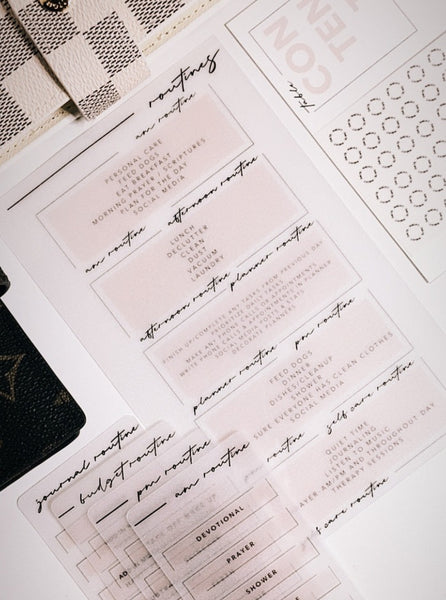 routines
am routine
PERSONAL CARE
FEED DOGS
EAT BREAKFAST
MORNING PRAYER / SCRIPTURES
PLAN FOR THE DAY
SOCIAL MEDIA
am routine
afternoon routine
LUNCH
DECLUTTER
CLEAN
DUST
VACUUM
LAUNDRY
afternoon routine
planner routine
FINISH UP/COMPLETE ANY TASKS FROM PREVIOUS DAY
MAKE ANY APPOINTMENTS
PHONE CALLS
WRITE PHONE CALLS & APPOINTMENTS IN PLANNER
SOCIAL MEDIA POSTS & STATS
DECORATE PLANNERS
planner routine
pm routine
FEED DOGS
DINNER
DISHES/CLEANUP
SHOWER
SURE EVERYONE HAS CLEAN CLOTHES
SOCIAL MEDIA
routine
self care routine
QUIET TIME
JOURNALING
LISTEN TO MUSIC
AYER-AM/PM AND THROUGHOUT DAY
THERAPY SESSIONS
care routine
CON
TEN
table
journal routine
budget routine
AD
pm routine
am routine
DEVOTIONAL
PRAYER
SHOWER